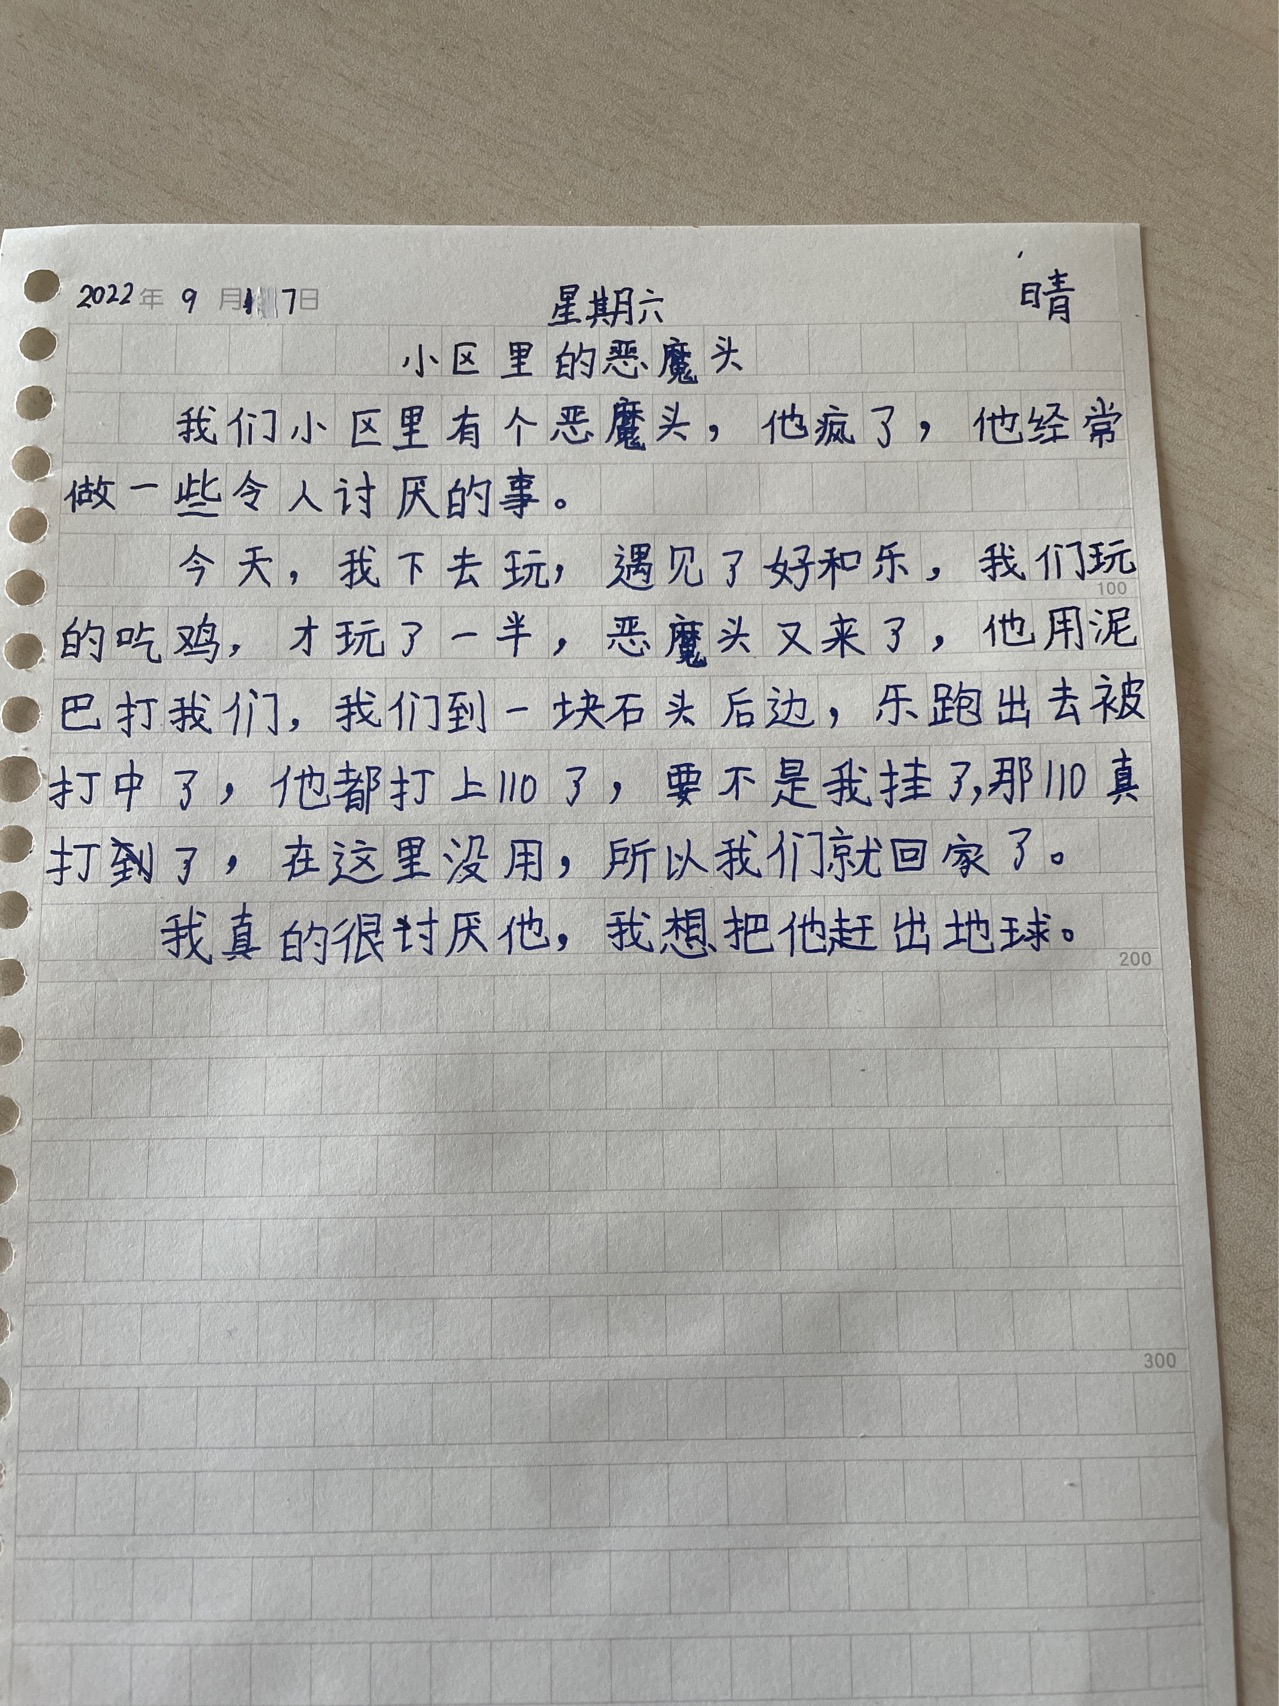 2022年 9 月17日 星期六 晴
小区里的恶魔头
我们小区里有个恶魔头，他疯了，他经常
做一些令人讨厌的事。
今天，我下去玩，遇见了好和乐，我们玩
100
的吃鸡，才玩了一半，恶魔头又来了，他用泥
巴打我们，我们到一块石头后边，乐跑出去被
打中了，他都打上110了，要不是我挂了，那110真
打到了，在这里没用，所以我们就回家了。
我真的很讨厌他，我想把他赶出地球。
200
300